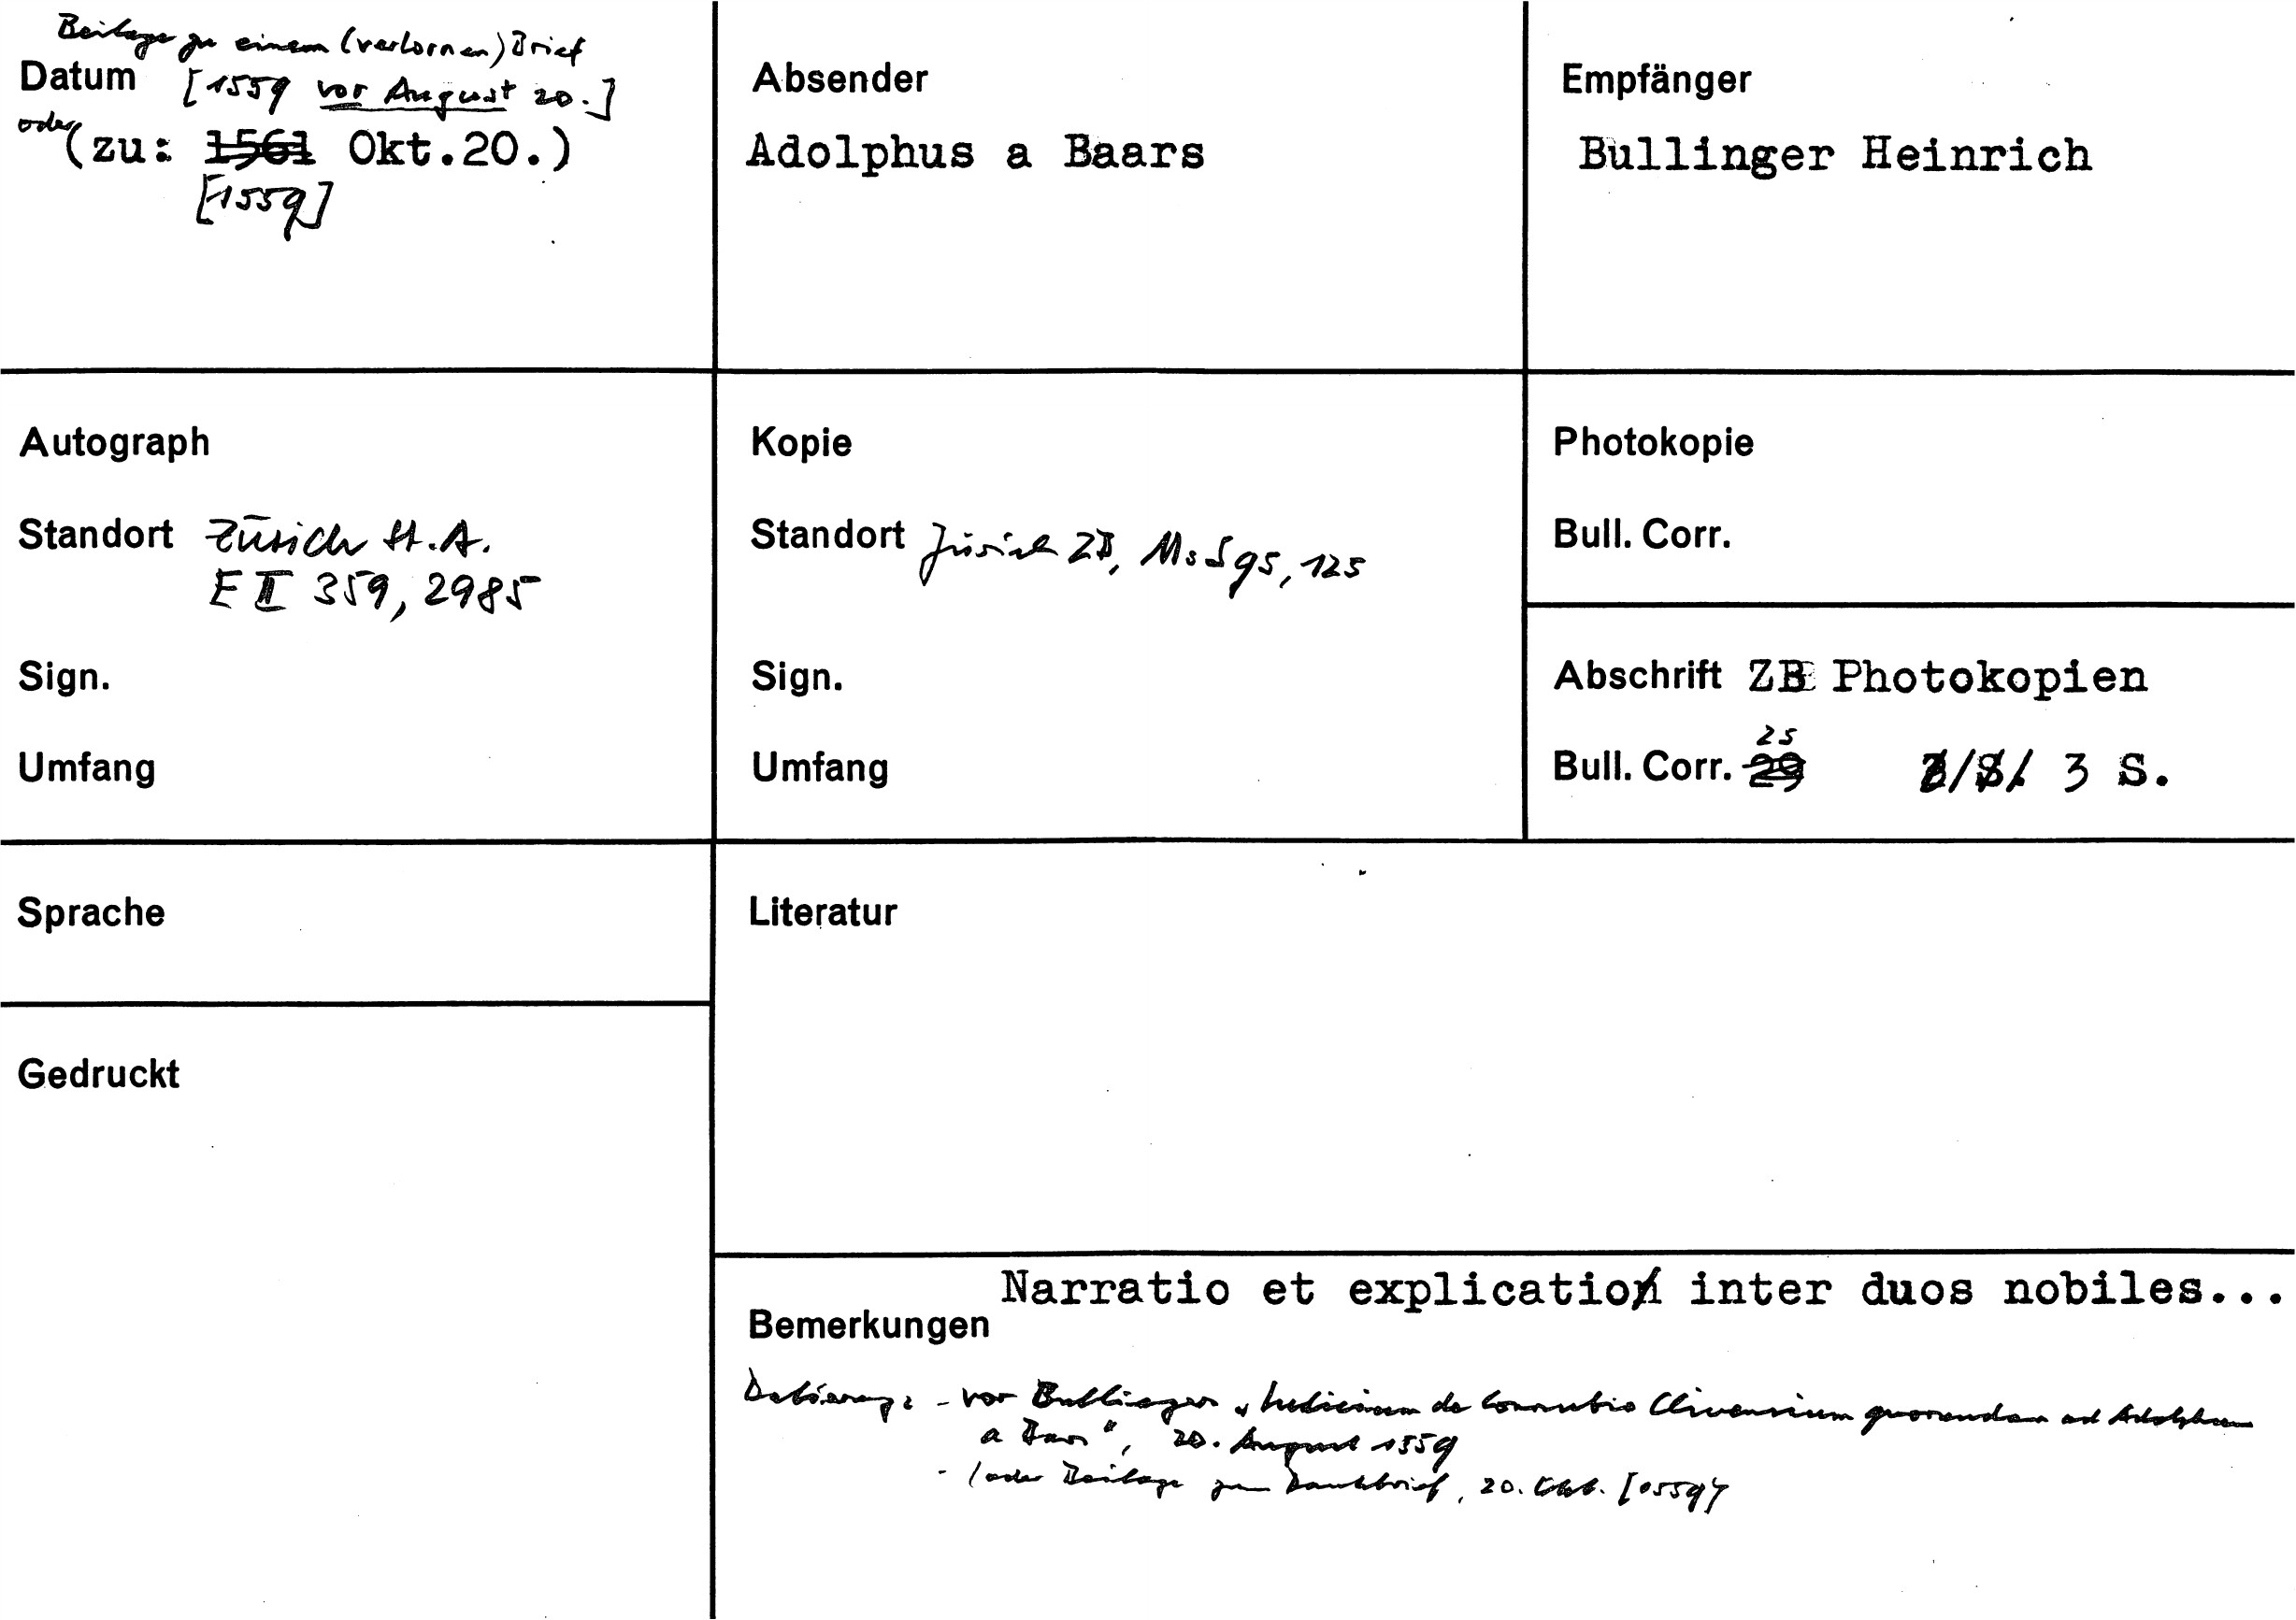 Beilage zu einem (verlornen) Brief
Datum [1559 vor August 20.]
oder (zu: 1561 Okt.20.)
[1559]
Absender
Adolphus a Baars
Empfänger
Bullinger Heinrich
Autograph
Standort Zürich St.A.
E II 359, 2985
Sign.
Umfang
Kopie
Standort Zürich ZB, Ms S 95, 125
Sign.
Umfang
Photokopie
Bull. Corr.
Abschrift ZB Photokopien
25
Bull. Corr. 29 3 S.
Sprache
Literatur
Gedruckt
Narratio et explicatio inter duos nobiles...
Bemerkungen
Datierung: - vor Bullingers "Iudicium de Connubio Clivensium quorundam ad Adolphum
a Bars", 20. August 1559
- (oder Beilage zum Dankbrief, 20. Okt. [1559])